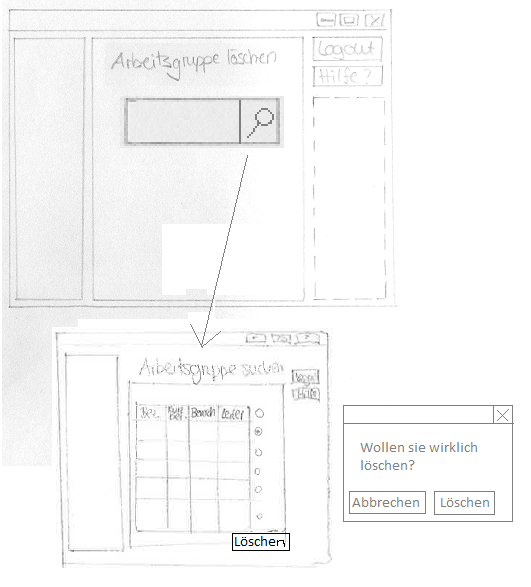 Arbeitsgruppe löschen
Logout
Hilfe?
Arbeitsgruppe suchen
Hilfe
Bez. Bereich Leiter
Löschen
Wollen sie wirklich
löschen?
Abbrechen Löschen